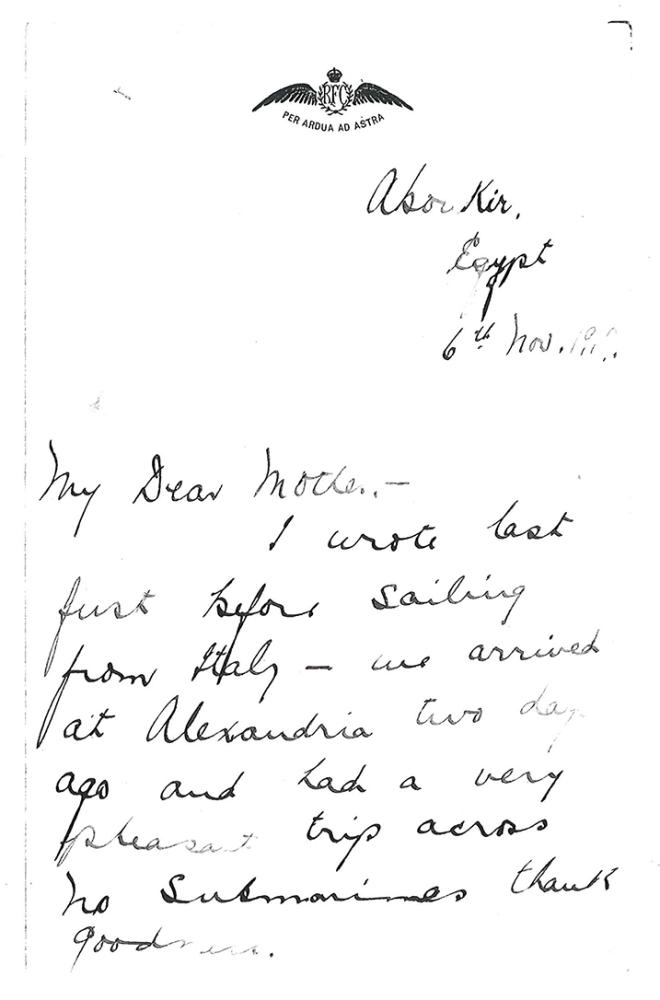 RFC
PER ARDUA AD ASTRA
Abou Kir.
Egypt
6th Nov.
My Dear Mother.—
I wrote last
just before sailing
from Italy — we arrived
at Alexandria two days
ago and had a very
pleasant trip across
no submarines thank
goodness.